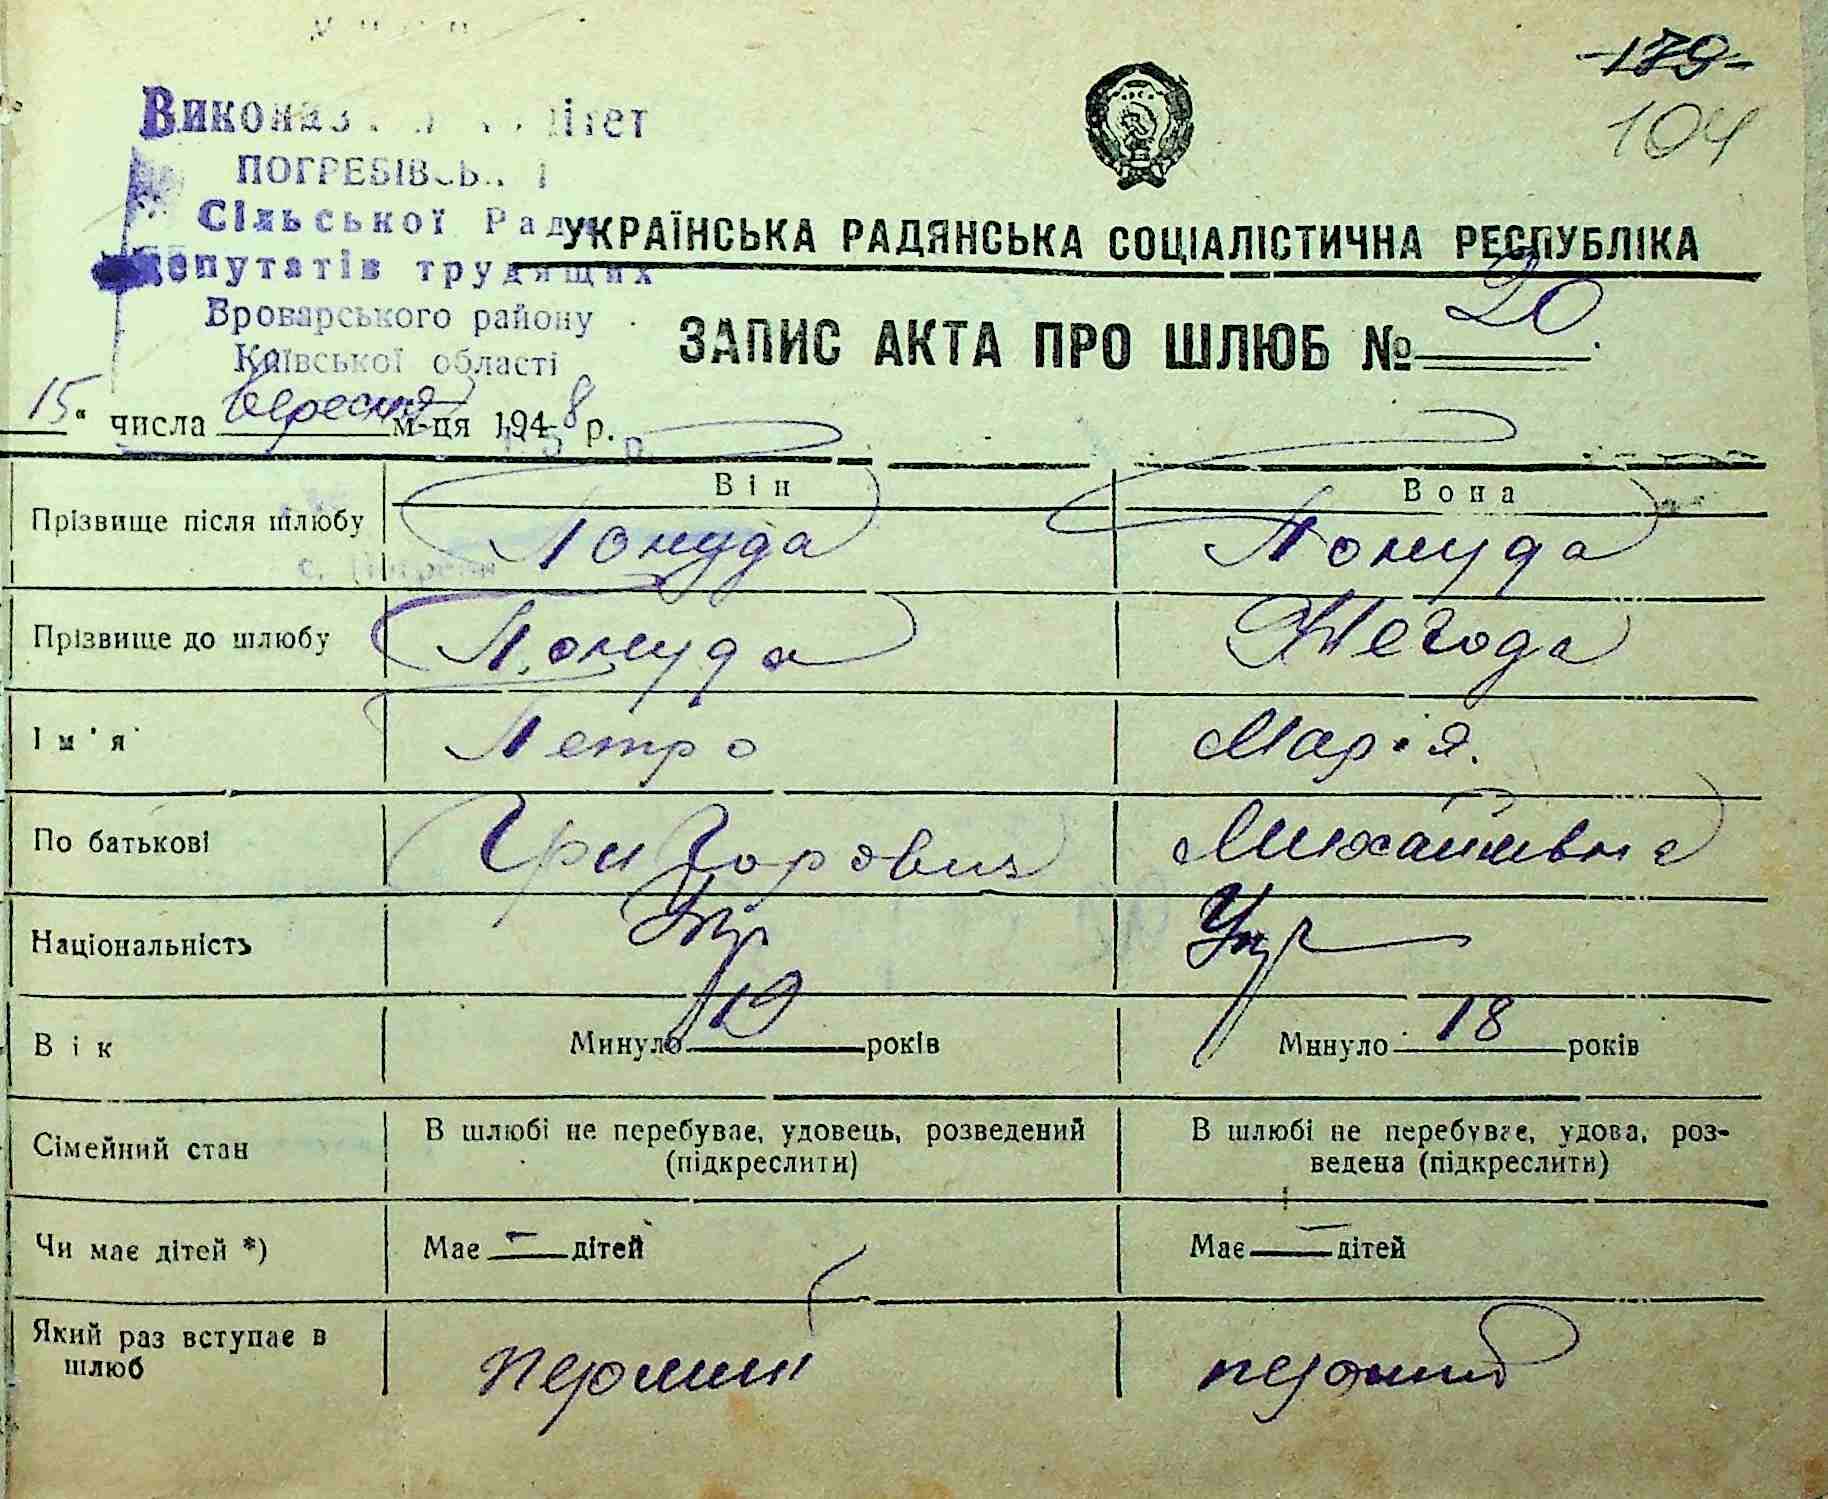 -179-
104
Виконав ітет
ПОГРЕБІВСЬ
Сільської Рад
Депутатів трудящих
Броварського району
Київської області
УКРАЇНСЬКА РАДЯНСЬКА СОЦІАЛІСТИЧНА РЕСПУБЛІКА
ЗАПИС АКТА ПРО ШЛЮБ № 20
15 " числа вересня м-ця 1948 р.
Він Вона
Прізвище після шлюбу Понуда Понуда
Прізвище до шлюбу Понуда Негода
Ім'я Петро Марія.
По батькові Григорович Михайлівна
Національність Укр Укр
Вік Минуло 19 років Минуло 18 років
Сімейний стан В шлюбі не перебуває, удовець, розведений (підкреслити) В шлюбі не перебуває, удова, роз-
ведена (підкреслити)
Чи має дітей *) Має — дітей Має — дітей
Який раз вступає в
шлюб перший перший